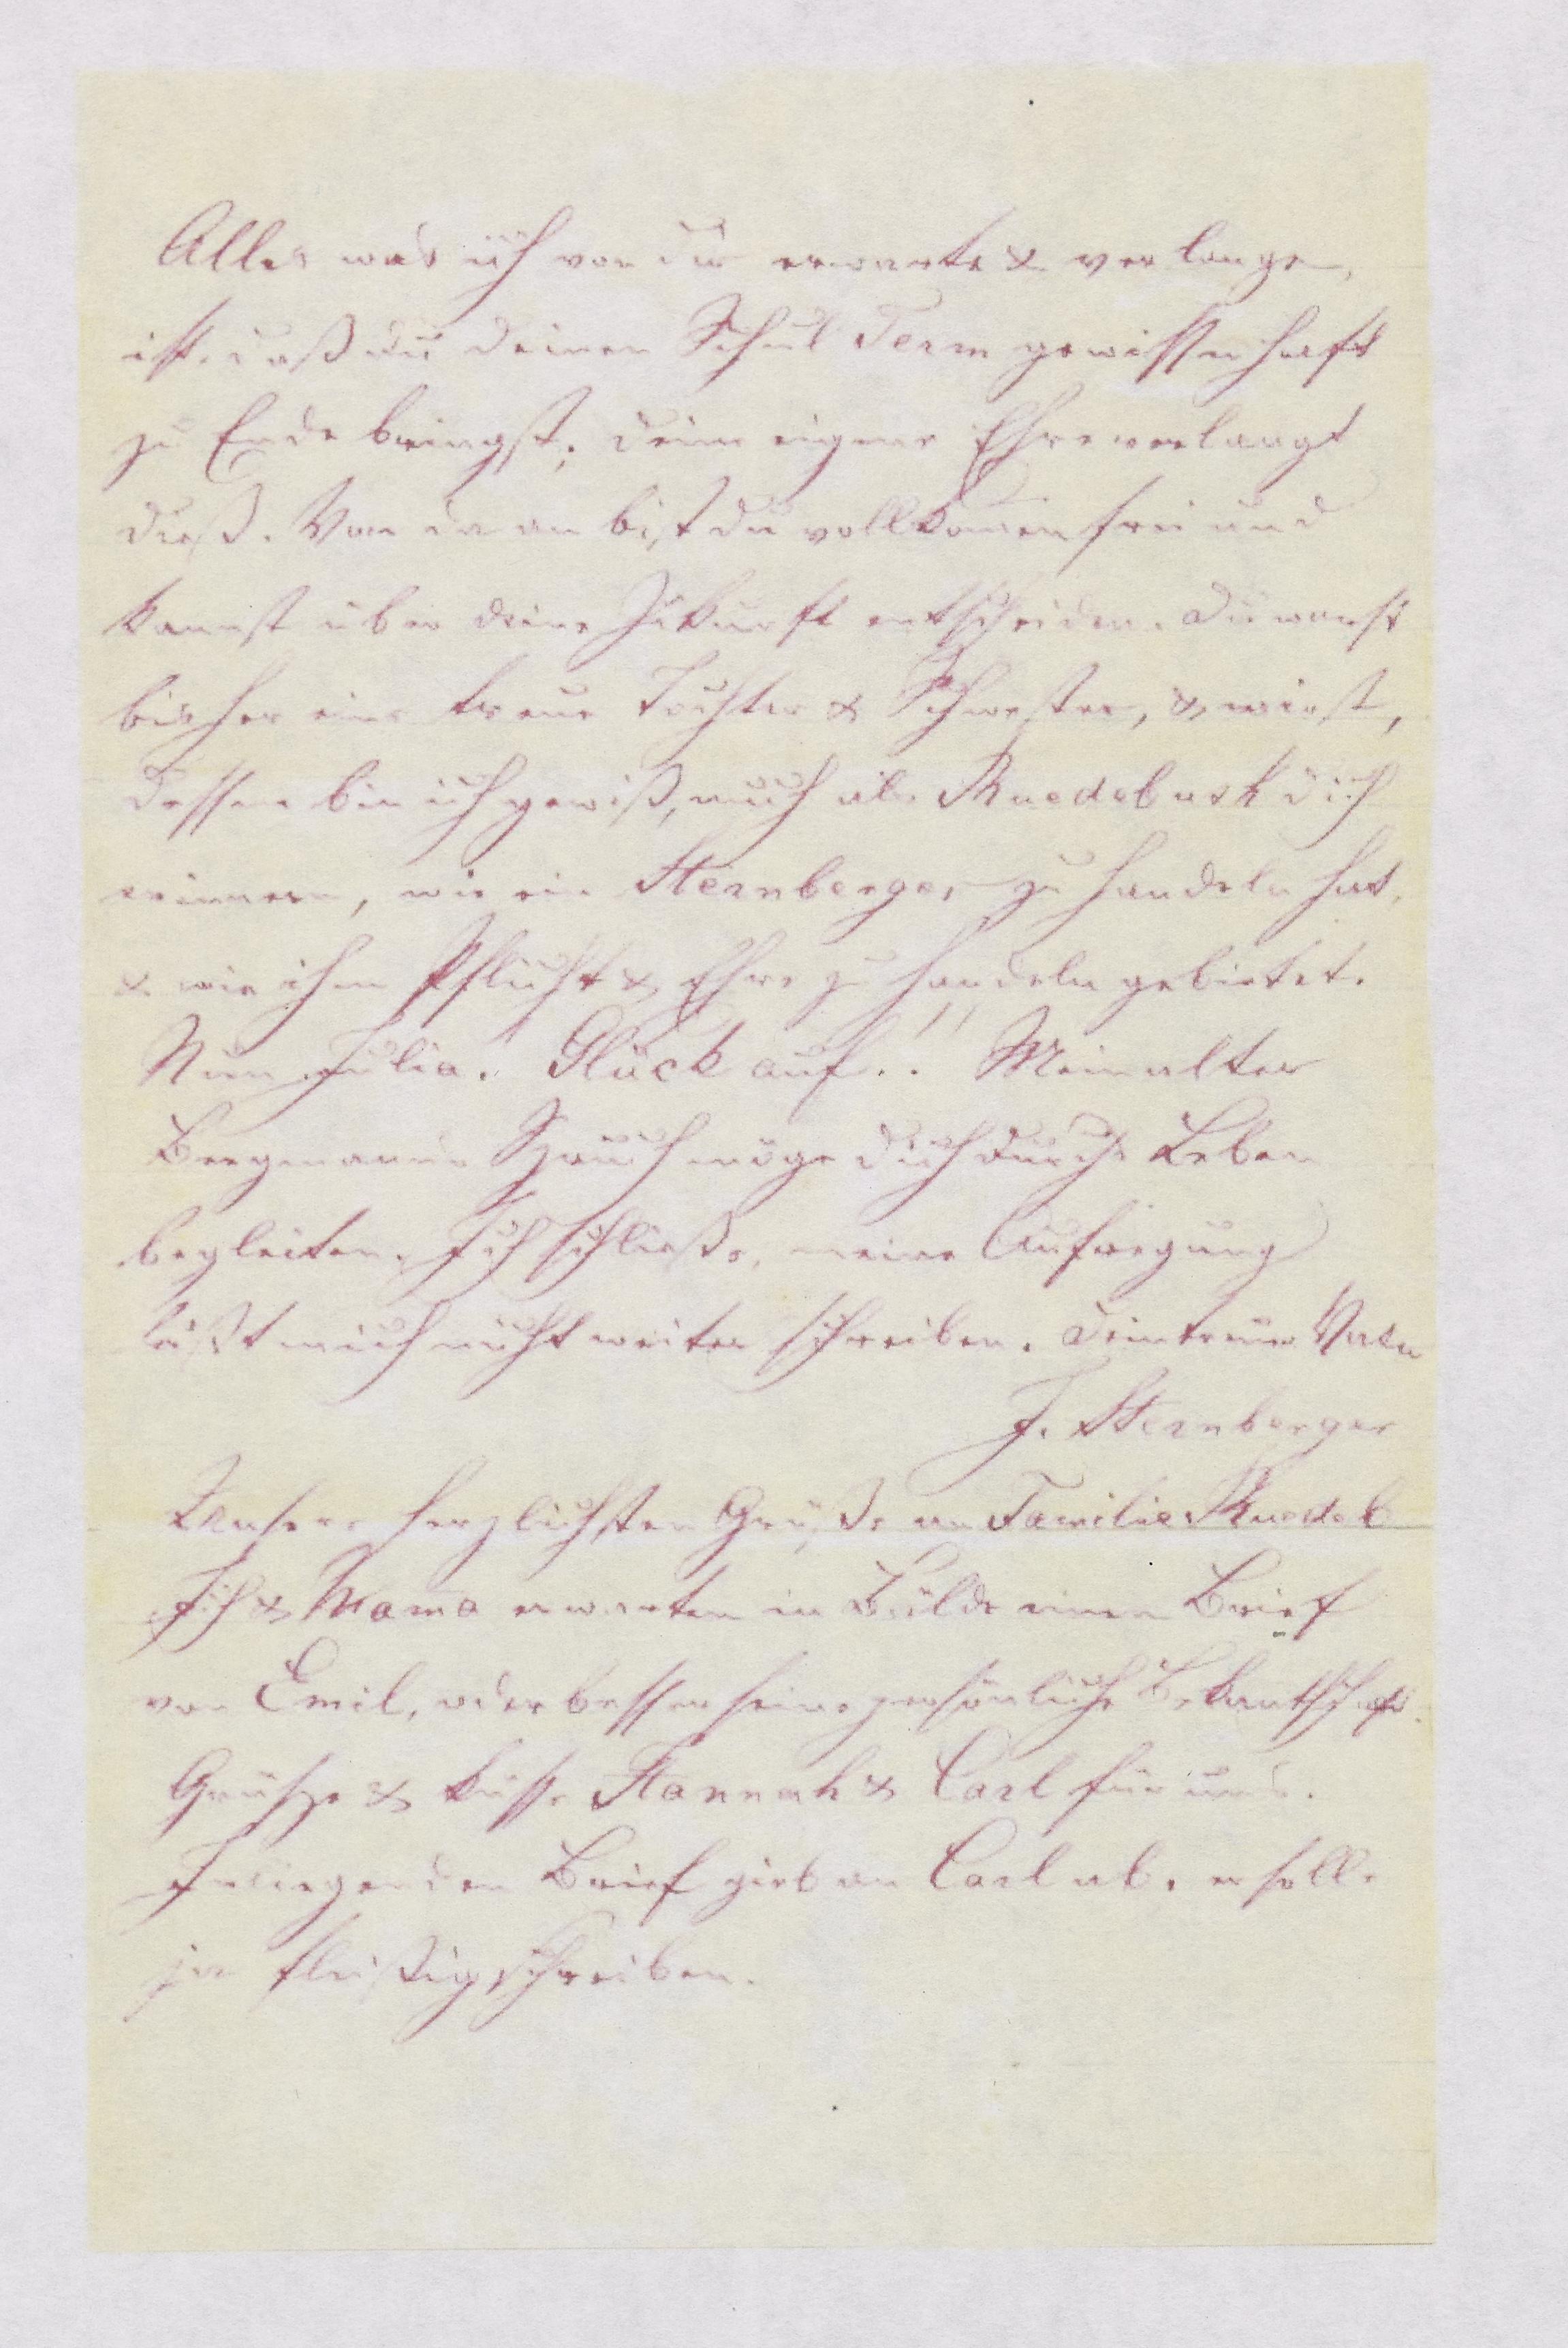 Alles was ich von dir erwarte & verlange,
ist, daß du deinen Schul Term gewissenhaft
zu Ende bringst; deine eigene Ehre verlangt
dieß. Von da an bist du vollkomen frei und
kannst über deine Zukunft entscheiden. Du warst
bisher eine treue Tochter & Schwester, & wirst,
dessen bin ich gewiß, auch als Ruedebusk dich
erinnern, wie ein Sternberger zu handeln hat,
& wie ihm Pflicht & Ehre zu handeln gebietet.
Nun Julia! Glück auf!! Mein alter
Bergmanns Spruch möge dich durchs Leben
begleiten. Ich schließe, meine Aufregung
läßt mich nicht weiter schreiben. Dein treuer Vater
J. Sternberger
Unsere herzlichsten Grüße an Familie Ruedeb
Ich & Mama erwarten in Bälde einen Brief
von Emil, oder besser seine persönliche Bekantschaft.
Grüsse & küsse Hannah & Carl für uns.
Inliegenden Brief gieb an Carl ab, er solle
ja fleißig schreiben.